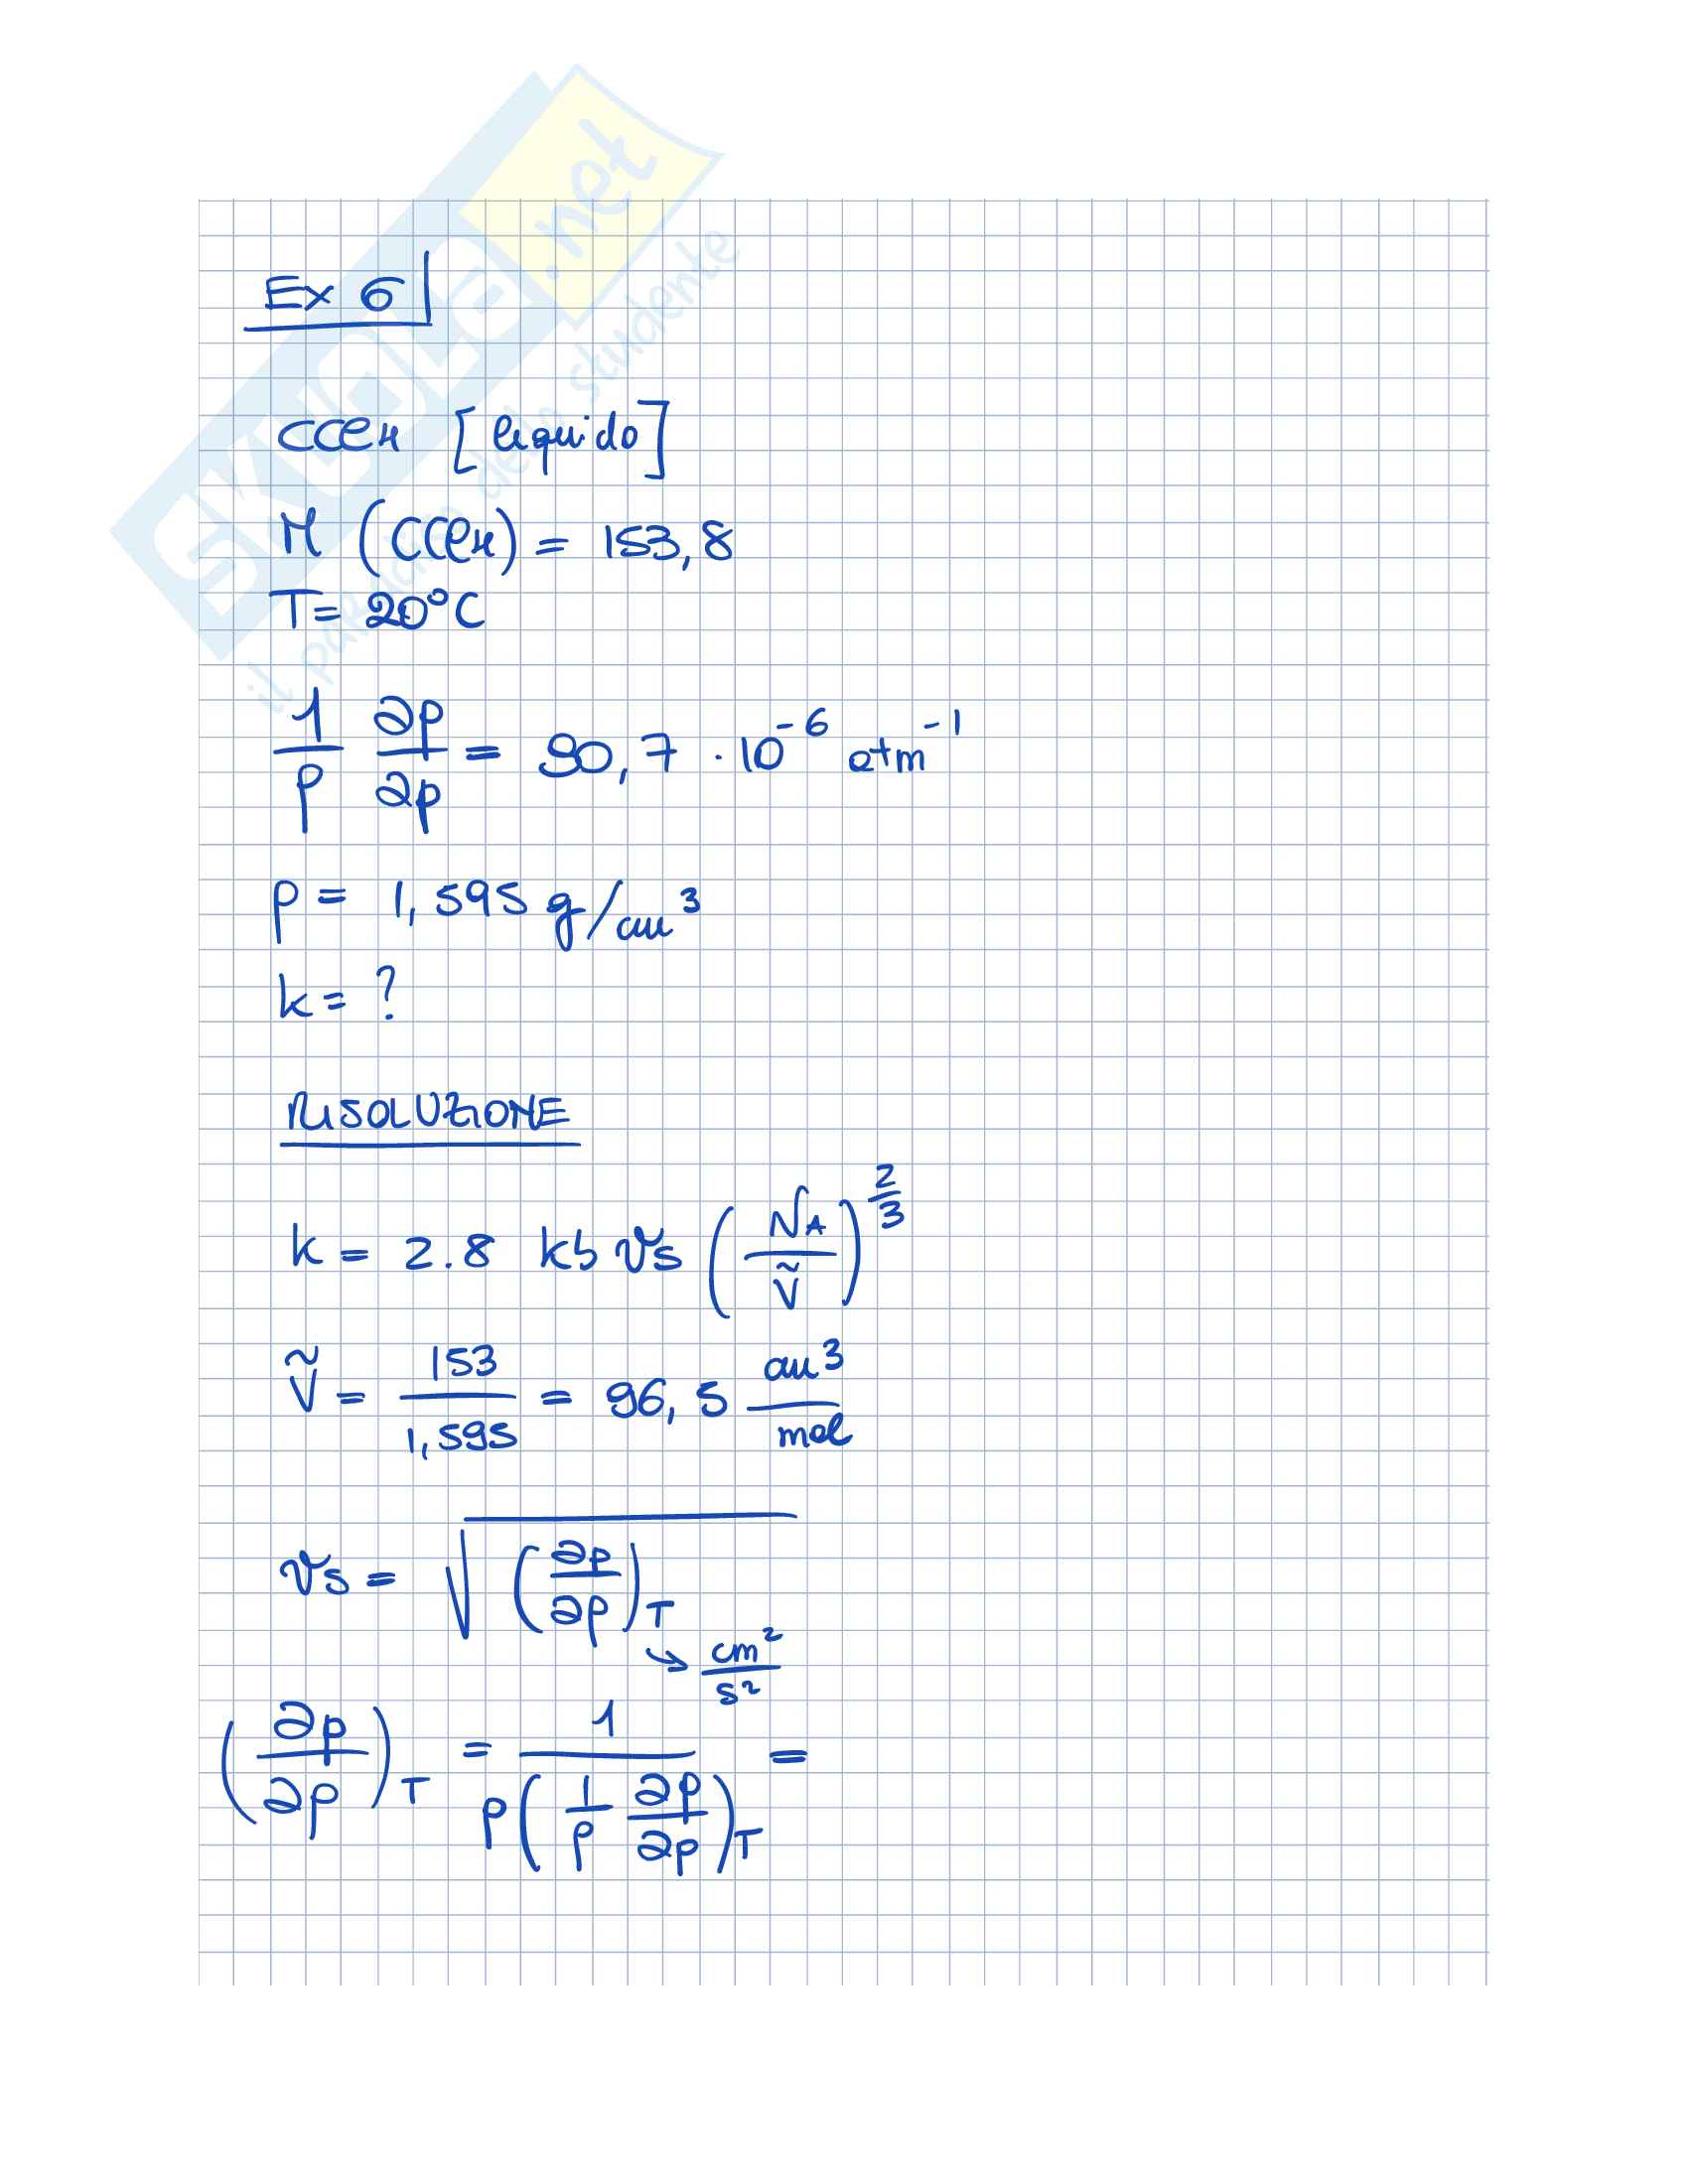 SKUOLA.net
il paradiso dello studente
Ex 6
CCl4 [liquido]
M (CCl4) = 153,8
T = 20°C
1/ρ ∂ρ/∂p = 90,7 · 10^-6 atm^-1
ρ = 1,595 g/cm³
k = ?
RISOLUZIONE
k = 2.8 kb vs (NA/Ṽ)^2/3
Ṽ = 153/1,595 = 96,5 cm³/mol
vs = √(∂p/∂ρ)T
→ cm²/s²
(∂p/∂ρ)T = 1/ρ(1/ρ ∂ρ/∂p)T =